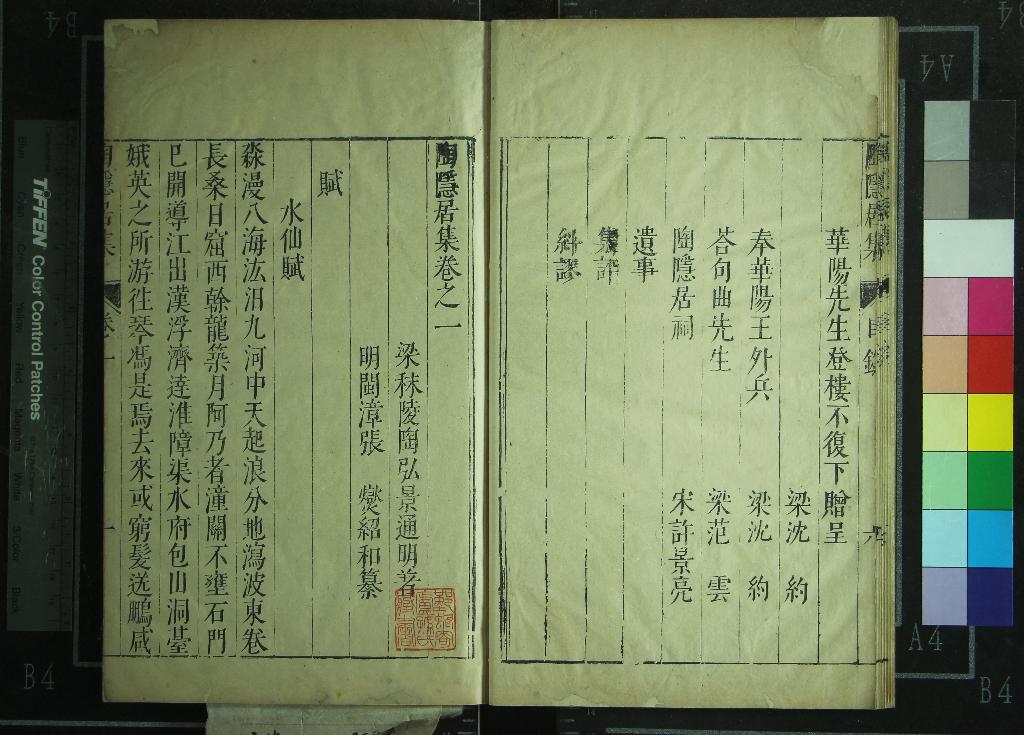 華陽先生登樓不復下贈呈
梁沈 約
奉華陽王外兵 梁沈 約
荅句曲先生 梁范 雲
陶隱居祠 宋許景亮
遺事
集評
糾謬
陶隱居集卷之一
梁秣陵陶弘景通明著
明閩漳張 燮紹和纂
賦
水仙賦
淼漫八海汯汨九河中天起浪分地瀉波東卷
長桑日窟西斡龍築月阿乃者潼關不壅石門
巳開導江出漢浮濟達淮障渠水府包山洞臺
娥英之所游往琴馮是焉去來或窮髮送鵬咸
隱居集 目錄
卷一 一
TIFFEN Color Control Patches
B4
A4
B4